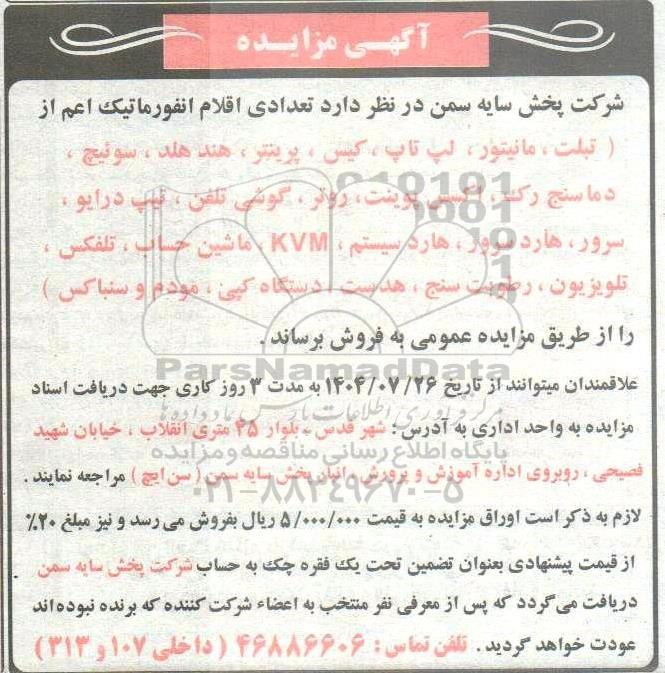 آگهی مزایده
شرکت پخش سایه سمن در نظر دارد تعدادی اقلام انفورماتیک اعم از
( تبلت ، مانیتور ، لپ تاپ ، کیس ، پرینتر ، هند هلد ، سوئیچ ،
دماسنج رک ، اکسس پوینت، روتر ، گوشی تلفن ، تیپ درایو ،
سرور ، هارد سرور ، هارد سیستم ، KVM ، ماشین حساب ، تلفکس ،
تلویزیون ، رطوبت سنج ، هدست ، دستگاه کپی ، مودم و سنباکس )
را از طریق مزایده عمومی به فروش برساند .
ParsNamadData
علاقمندان میتوانند از تاریخ ۱۴۰۴/۰۷/۲۶ به مدت ۳ روز کاری جهت دریافت اسناد
مزایده به واحد اداری به آدرس : شهر قدس ، بلوار ۴۵ متری انقلاب ، خیابان شهید
پایگاه اطلاع رسانی مناقصه و مزایده
فصیحی ، روبروی اداره آموزش و پرورش ، انبار پخش سایه سمن ( سن ایچ ) مراجعه نمایند .
۰۲۱-۸۸۳۴۹۶۷۰-۵
لازم به ذکر است اوراق مزایده به قیمت ۵/۰۰۰/۰۰۰ ریال بفروش می رسد و نیز مبلغ ۲۰٪
از قیمت پیشنهادی بعنوان تضمین تحت یک فقره چک به حساب شرکت پخش سایه سمن
دریافت می گردد که پس از معرفی نفر منتخب به اعضاء شرکت کننده که برنده نبوده اند
عودت خواهد گردید . تلفن تماس : ۴۶۸۸۶۶۰۶ ( داخلی ۱۰۷ و ۳۱۳ )